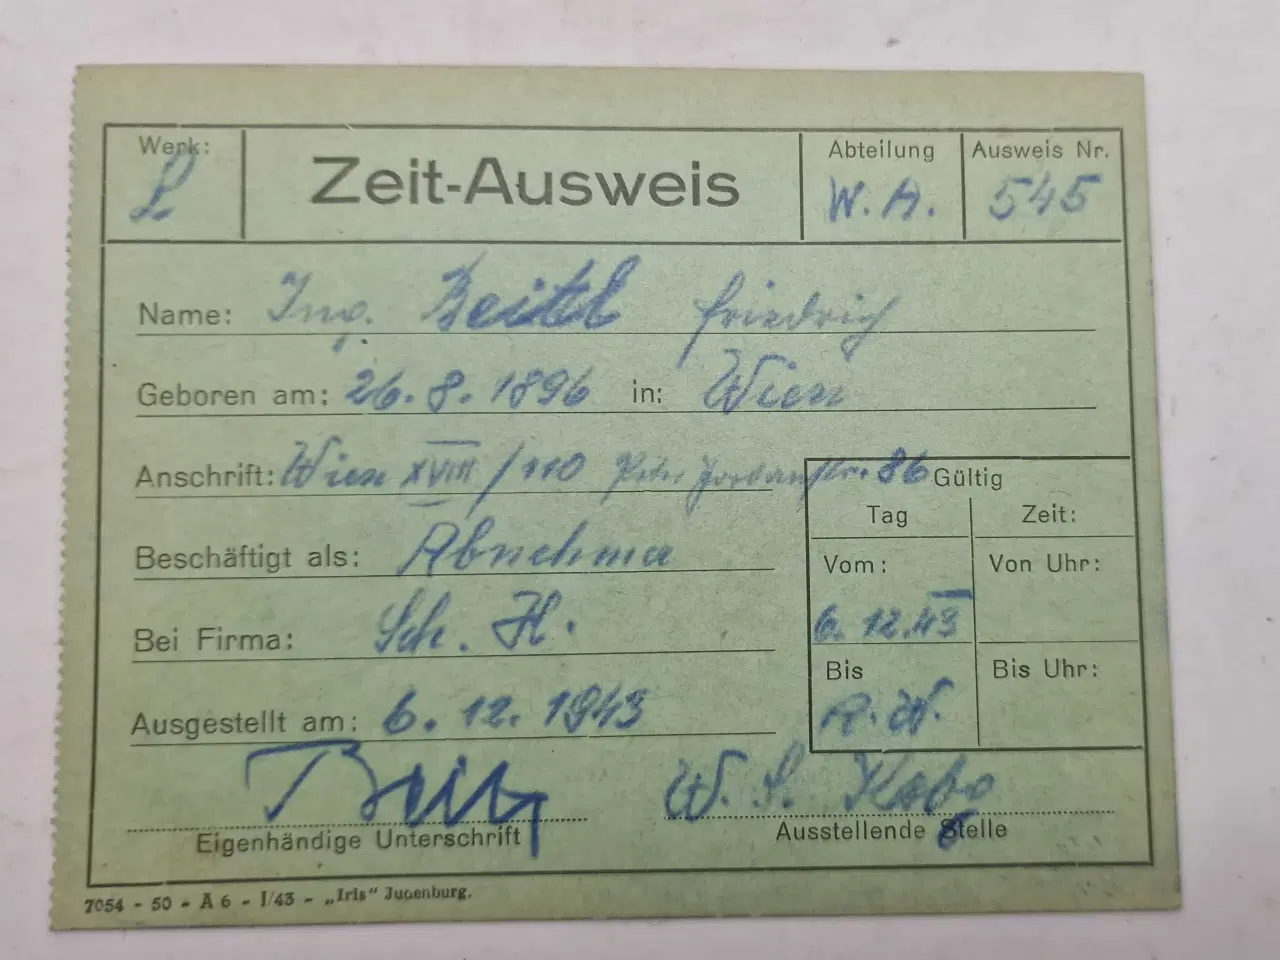 Werk: L
Zeit-Ausweis
Abteilung W. A.
Ausweis Nr. 545
Name: Ing. Beitl Friedrich
Geboren am: 26.8.1896 in: Wien
Anschrift: Wien XVIII/110 Peter Jordanstr. 86
Beschäftigt als: Abnehma
Bei Firma: Sch. H.
Ausgestellt am: 6.12.1943
Gültig
Tag Zeit:
Vom: Von Uhr:
6.12.43
Bis Bis Uhr:
R.W.
W. S.
Eigenhändige Unterschrift Ausstellende Stelle
7054 - 50 - A 6 - I/43 - „Iris“ Judenburg.